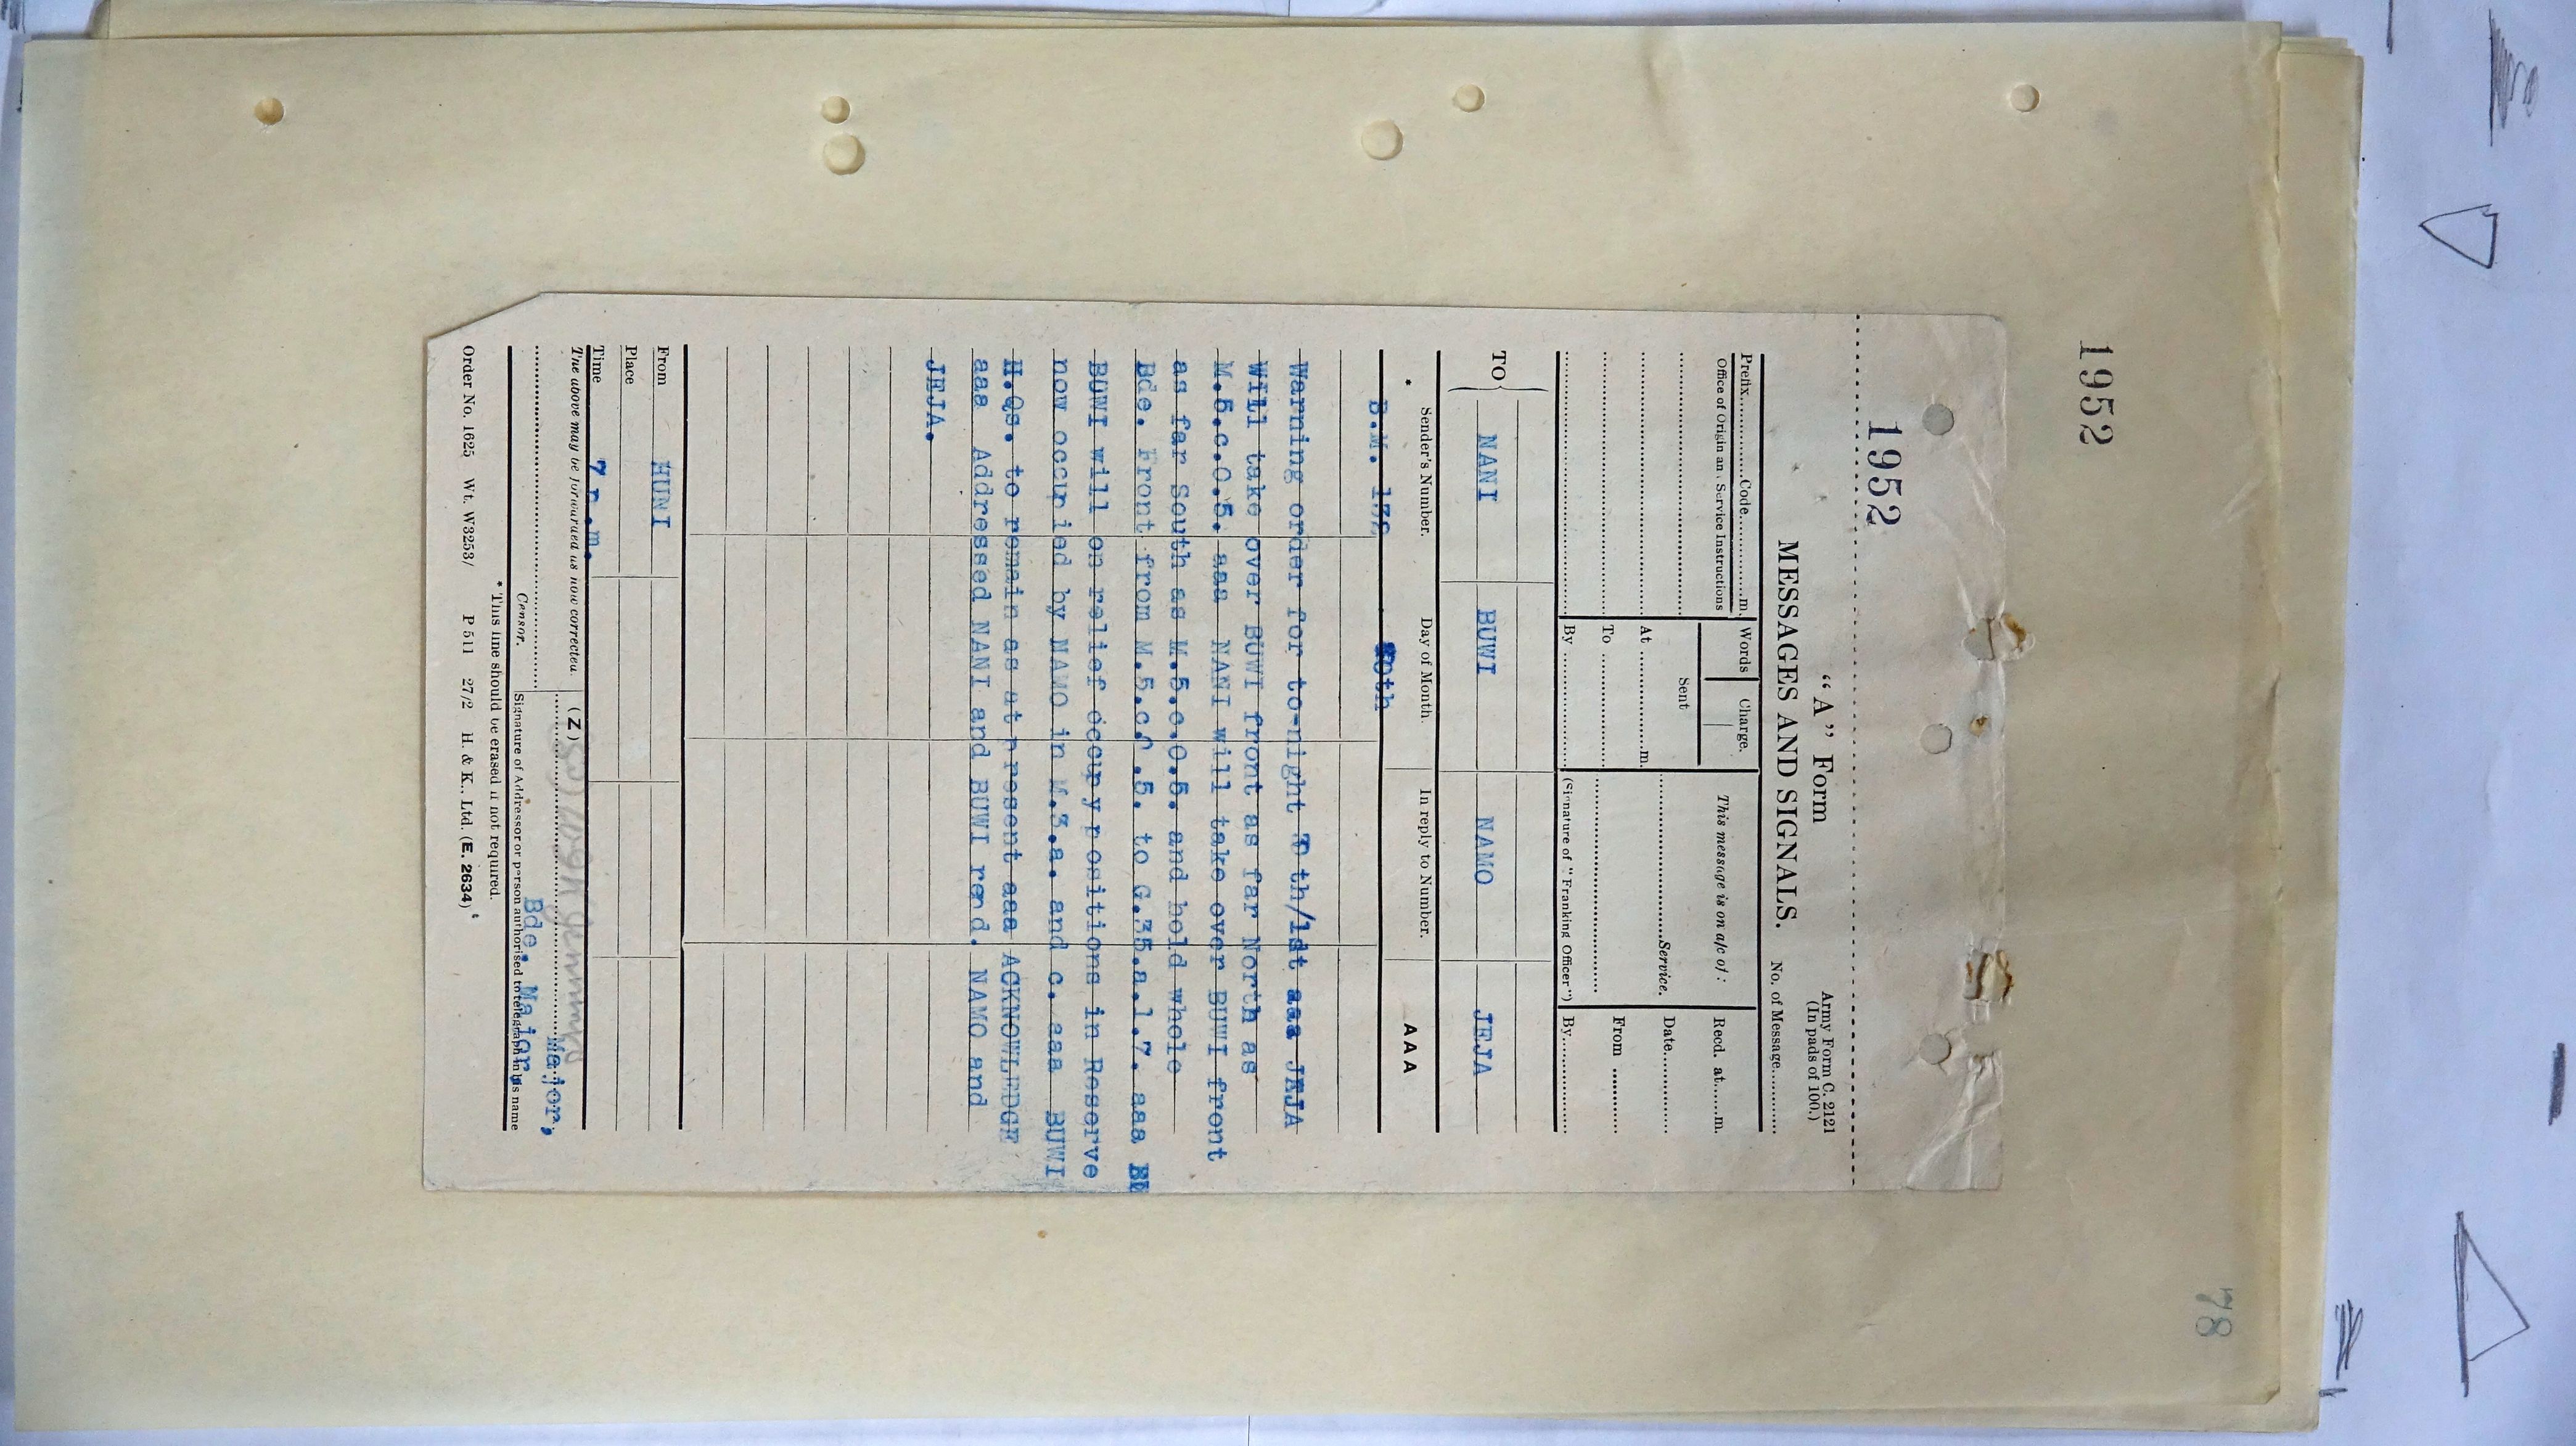 1952
78
1952
"A" Form
Army Form C. 2121
(In pads of 100.)
MESSAGES AND SIGNALS.
No. of Message
Prefix Code m.
Words
Charge.
This message is on a/c of :
Recd. at m.
Office of Origin an Service Instructions
Sent
Service.
Date
At m.
From
To
By
(Signature of "Franking Officer")
By
TO
NANI
BUWI
NAMO
JEJA
* Sender's Number.
Day of Month.
In reply to Number.
AAA
B.M.
Warning order for to-night th/1st aaa JEJA
Will take over BUWI front as far North as
M.5.c.0.5. aaa NANI will take over BUWI front
as far South as M.5.c.0.5. and hold whole
Bde. Front from to G.35.a.1.7. aaa
BUWI will on relief occupy positions in Reserve
now occupied by NAMO in M.3.a. and c. aaa BUWI
H.Qs. to remain as at present aaa ACKNOWLEDGE
aaa Addressed NANI and BUWI repd. NAMO and
JEJA.
From HUNI
Place
Time 7 p.m.
The above may be forwarded as now corrected.
(Z)
Major,
Bde. Major.
Censor.
Signature of Addressor or person authorised to telegraph in his name
* This line should be erased if not required.
Order No. 1625 Wt. W3253/ P 511 27/2 H. & K., Ltd. (E. 2634)